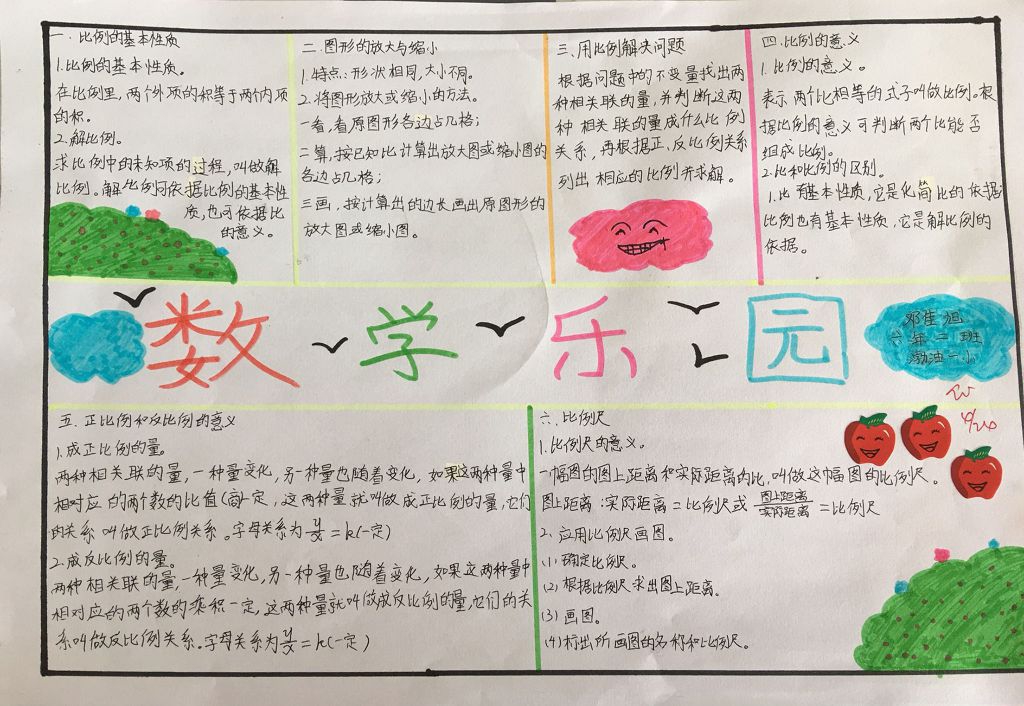 一.比例的基本性质
1.比例的基本性质。
在比例里,两个外项的积等于两个内项
的积。
2.解比例。
求比例中的未知项的过程,叫做解
比例。解比例可依据比例的基本性
质,也可依据比
的意义。
二.图形的放大与缩小
1.特点:形状相同,大小不同。
2.将图形放大或缩小的方法。
一看,看原图形各边占几格;
二算,按已知比计算出放大图或缩小图的
各边占几格;
三画,按计算出的边长画出原图形的
放大图或缩小图。
三.用比例解决问题
根据问题中的不变量找出两
种相关联的量,并判断这两
种相关联的量成什么比例
关系,再根据正、反比例关系
列出相应的比例并求解。
四.比例的意义
1.比例的意义。
表示两个比相等的式子叫做比例。根
据比例的意义可判断两个比能否
组成比例。
2.比和比例的区别。
1.比有基本性质,它是化简比的依据;
比例也有基本性质,它是解比例的
依据。
数学乐园
邓佳旭
六年二班
渤油一小
五.正比例和反比例的意义
1.成正比例的量。
两种相关联的量,一种量变化,另一种量也随着变化,如果这两种量中
相对应的两个数的比值(商)一定,这两种量就叫做成正比例的量,它们
的关系叫做正比例关系。字母关系为y/x=k(一定)
2.成反比例的量。
两种相关联的量,一种量变化,另一种量也随着变化,如果这两种量中
相对应的两个数的乘积一定,这两种量就叫做成反比例的量,它们的关
系叫做反比例关系。字母关系为y/x=k(一定)
六.比例尺
1.比例尺的意义。
一幅图的图上距离和实际距离的比,叫做这幅图的比例尺。
图上距离:实际距离=比例尺或图上距离/实际距离=比例尺
2.应用比例尺画图。
(1)确定比例尺。
(2)根据比例尺求出图上距离。
(3)画图。
(4)标出所画图的名称和比例尺。